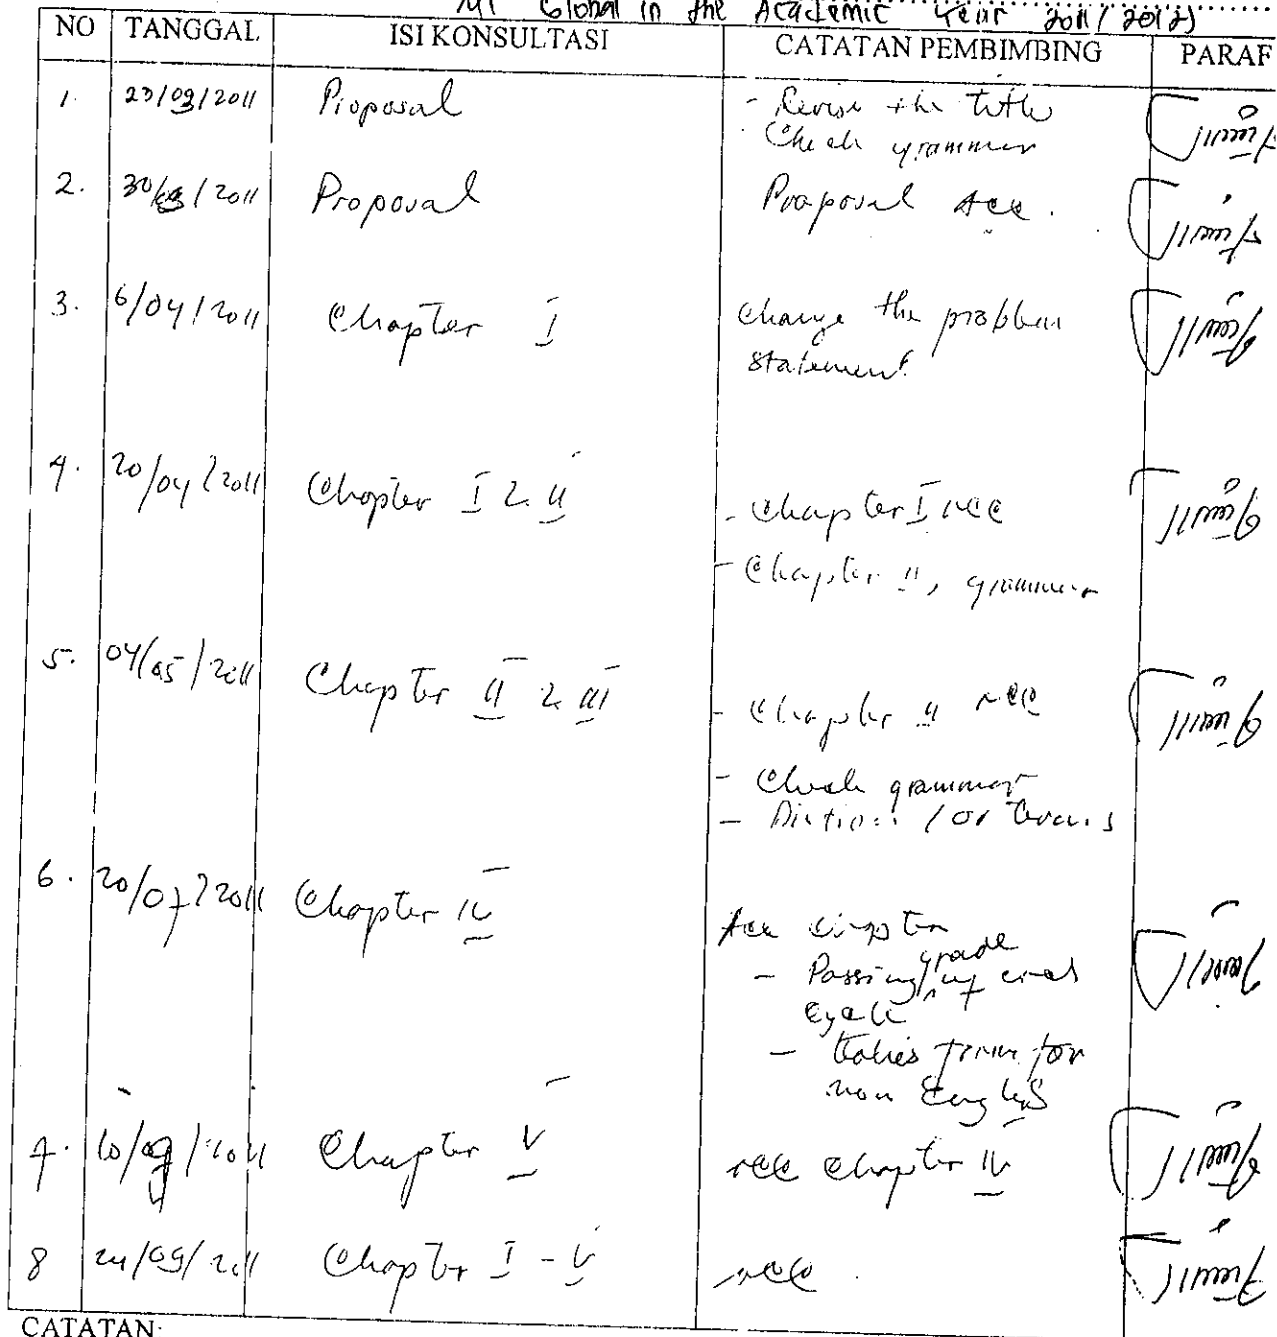 MI Global in the Academic Year 2011/2012)
NO TANGGAL ISI KONSULTASI CATATAN PEMBIMBING PARAF
1. 23/03/2011 Proposal - Revise the title
- Check grammar
2. 30/03/2011 Proposal Proposal Acc.
3. 6/04/2011 Chapter I Change the problem
statement.
4. 20/04/2011 Chapter I & II - Chapter I acc
- Chapter II, grammar
5. 04/05/2011 Chapter II & III - Chapter II acc
- Check grammar
- Diction / or
6. 20/07/2011 Chapter IV Acc chapter
- Passing grade of each
cycle
- Italics form for
non English
7. 10/09/2011 Chapter V acc chapter IV
8 24/09/2011 Chapter I - V acc.
CATATAN: